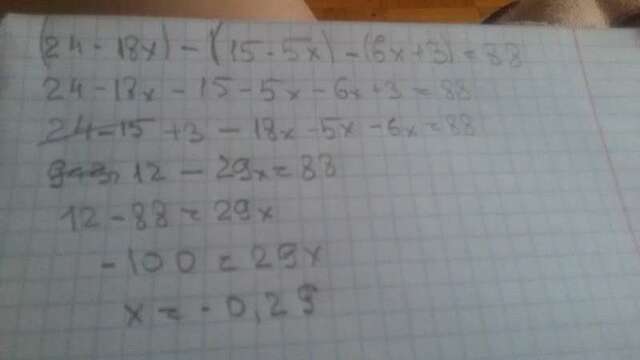 (24 - 18x) - (15 - 5x) - (6x + 3) = 88
24 - 18x - 15 - 5x - 6x + 3 = 88
24 - 15 + 3 - 18x - 5x - 6x = 88
12 - 29x = 88
12 - 88 = 29x
- 100 = 29x
x = - 0,29